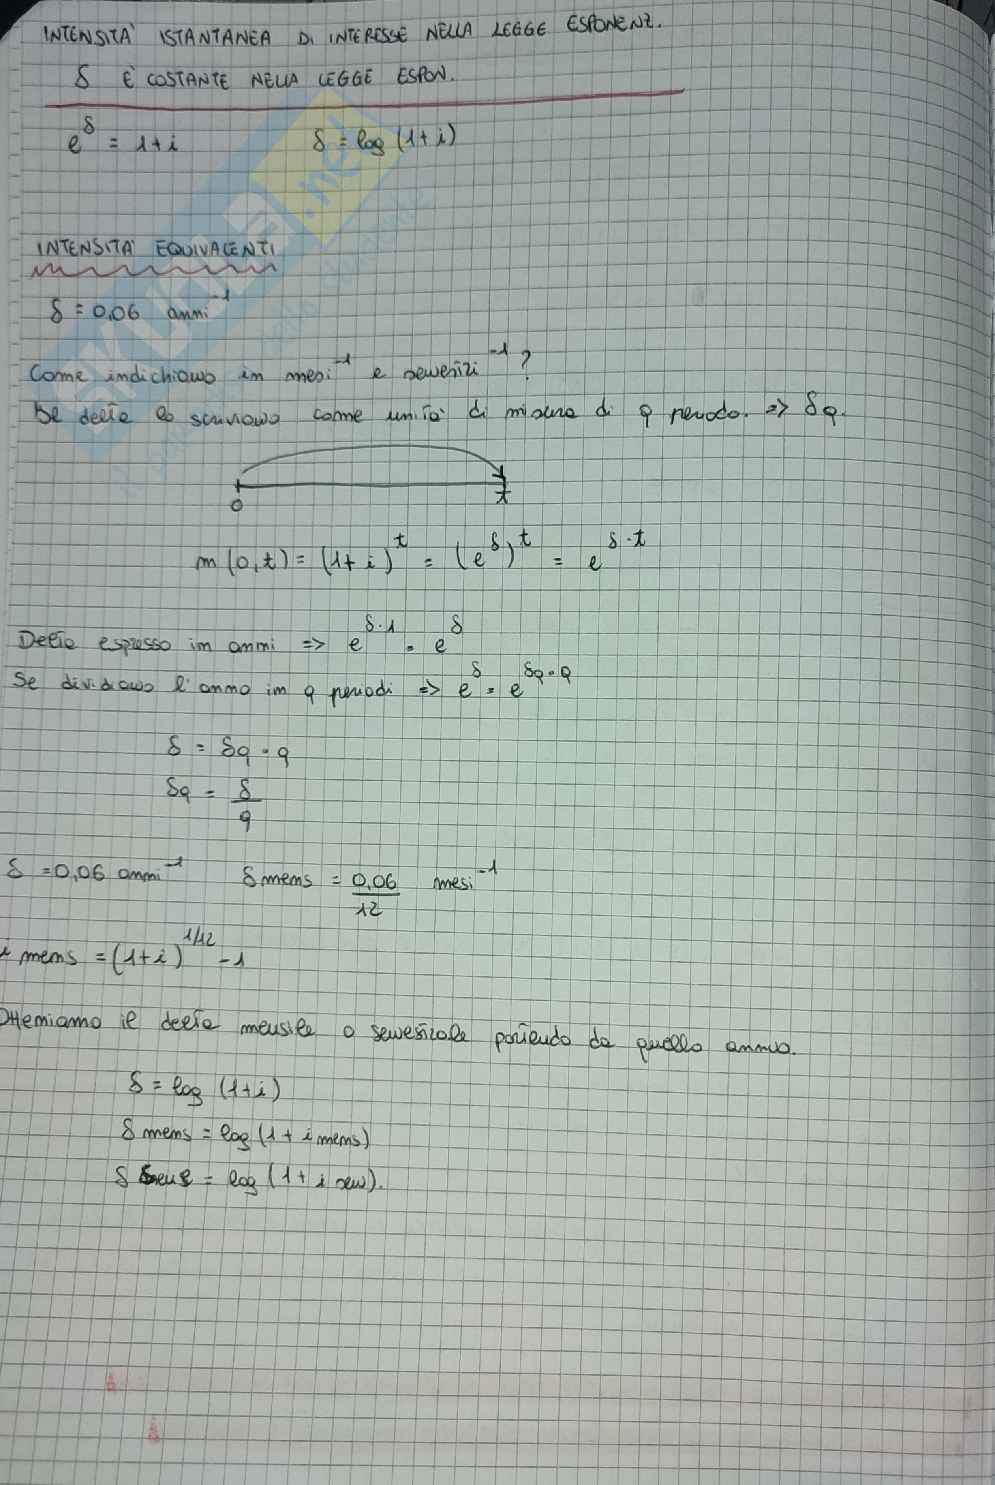 INTENSITA' ISTANTANEA DI INTERESSE NELLA LEGGE ESPONENZ.
δ È COSTANTE NELLA LEGGE ESPON.
e^δ = 1+i δ = log (1+i)
INTENSITA' EQUIVALENTI
δ = 0,06 anni^-1
Come indichiamo in mesi^-1 e semestri^-1 ?
Se delta lo scriviamo come unità di misura di q periodo. => δq.
0 t
m(0,t) = (1+i)^t = (e^δ)^t = e^δ·t
Delta espresso in anni => e^δ·1 = e^δ
Se dividiamo l'anno in q periodi => e^δ = e^δq·q
δ = δq · q
δq = δ/q
δ = 0,06 anni^-1 δ mens = 0,06/12 mesi^-1
i mens = (1+i)^1/12 - 1
Otteniamo il delta mensile o semestrale partendo da quello annuo.
δ = log (1+i)
δ mens = log (1 + i mens)
δ = log (1 + i sem).
SKUOLA.net